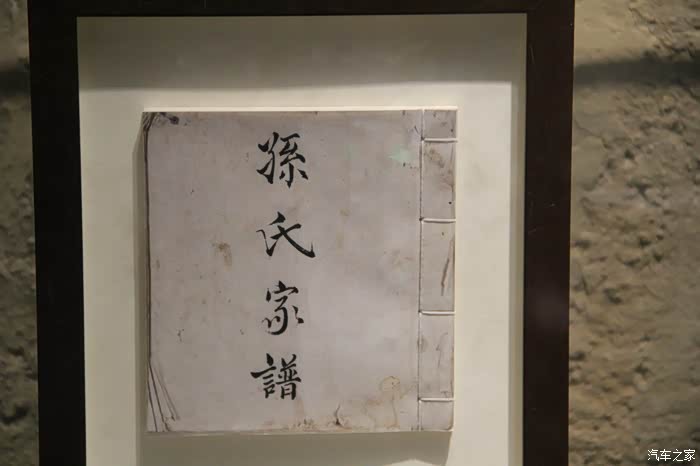 孫氏家譜
汽车之家